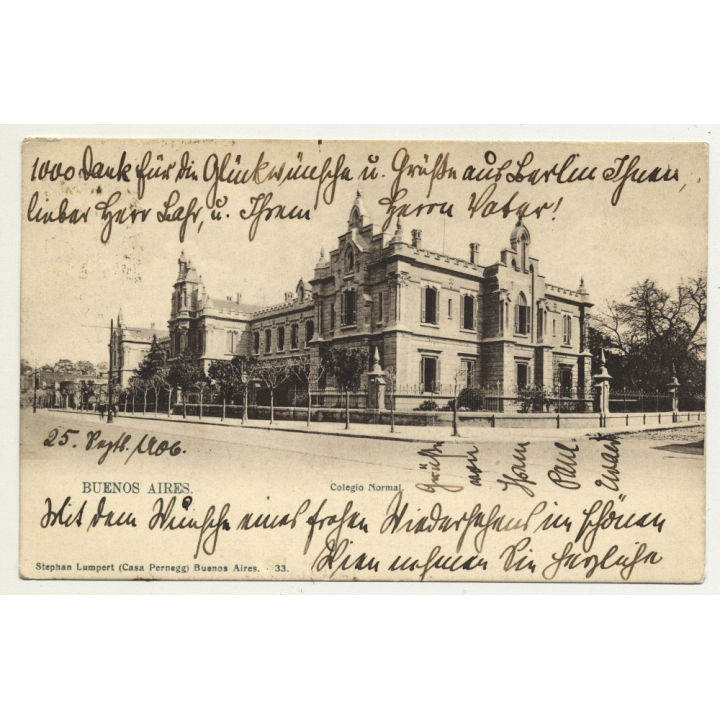 1000 Dank für die Glückwünsche u. Grüße aus Berlin Ihnen,
lieber Herr Lahr, u. Ihrem Herrn Vater!
25. Septb. 1906.
BUENOS AIRES.
Colegio Normal.
Grüße
von
Paul
Mit dem Wunsche eines frohen Wiedersehens im schönen
Wien nehmen Sie herzliche
Stephan Lumpert (Casa Pernegg) Buenos Aires. - 33.